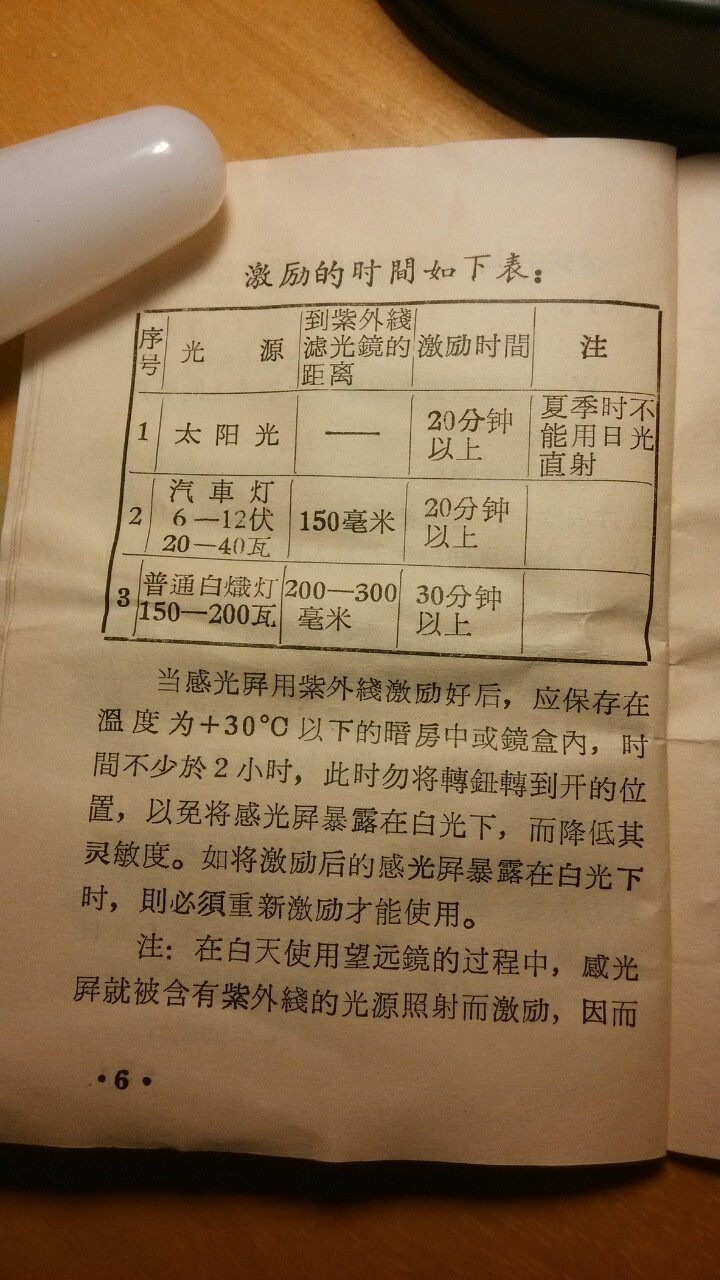 激励的时間如下表：
序号 光源 到紫外綫滤光鏡的距离 激励时間 注
1 太阳光 —— 20分钟以上 夏季时不能用日光直射
2 汽車灯 6—12伏 20—40瓦 150毫米 20分钟以上
3 普通白熾灯 150—200瓦 200—300毫米 30分钟以上
当感光屛用紫外綫激励好后，应保存在
溫度为+30°C以下的暗房中或鏡盒內，时
間不少於2小时，此时勿将轉鈕轉到开的位
置，以免将感光屛暴露在白光下，而降低其
灵敏度。如将激励后的感光屛暴露在白光下
时，則必須重新激励才能使用。
注：在白天使用望远鏡的过程中，感光
屛就被含有紫外綫的光源照射而激励，因而
•6•